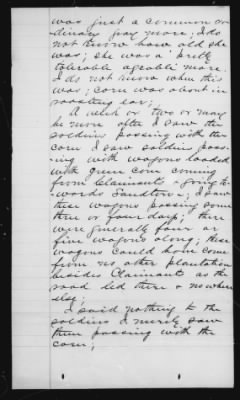 was just a common or-
dinary gray mare; I do
not know how old she
was; she was a pretty
tolerable agreable mare
I do not know when this
was; corn was about in
roasting ear;
A week or two or may
be more after I saw the
soldiers passing with the
corn I saw soldiers pass-
ing with wagons loaded
with green corn coming
from Claimants & going to-
wards ; I saw
these wagons passing some
three or four days; there
were generally four or
five wagons along; these
wagons could have come
from no other plantation
besides Claimants as the
road led there & no where
else;
I said nothing to the
soldiers I merely saw
them passing with the
corn;